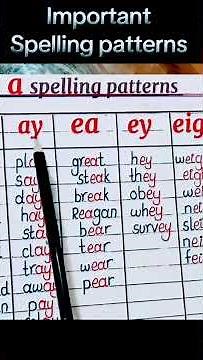 Important
Spelling patterns
a spelling patterns
ay ea ey eig
great hey
say steak they
day break obey
hay Reagan whey
bear survey
clay tear
tray wear
away pear
pay